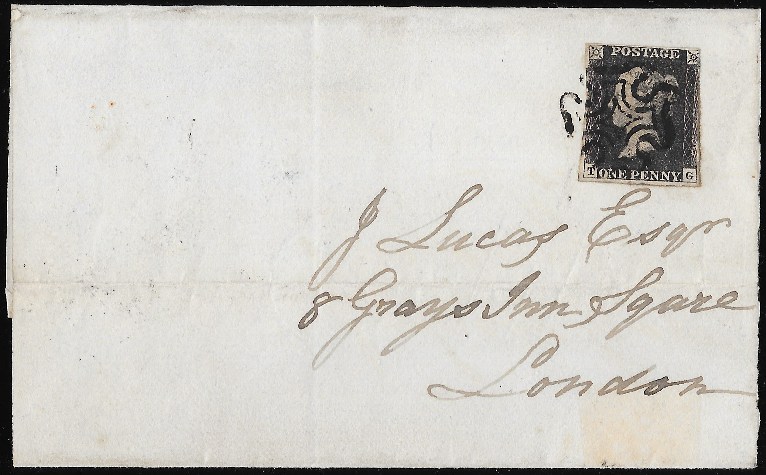 POSTAGE
T ONE PENNY G
J Lucas Esqr
8 Grays Inn Sqare
London